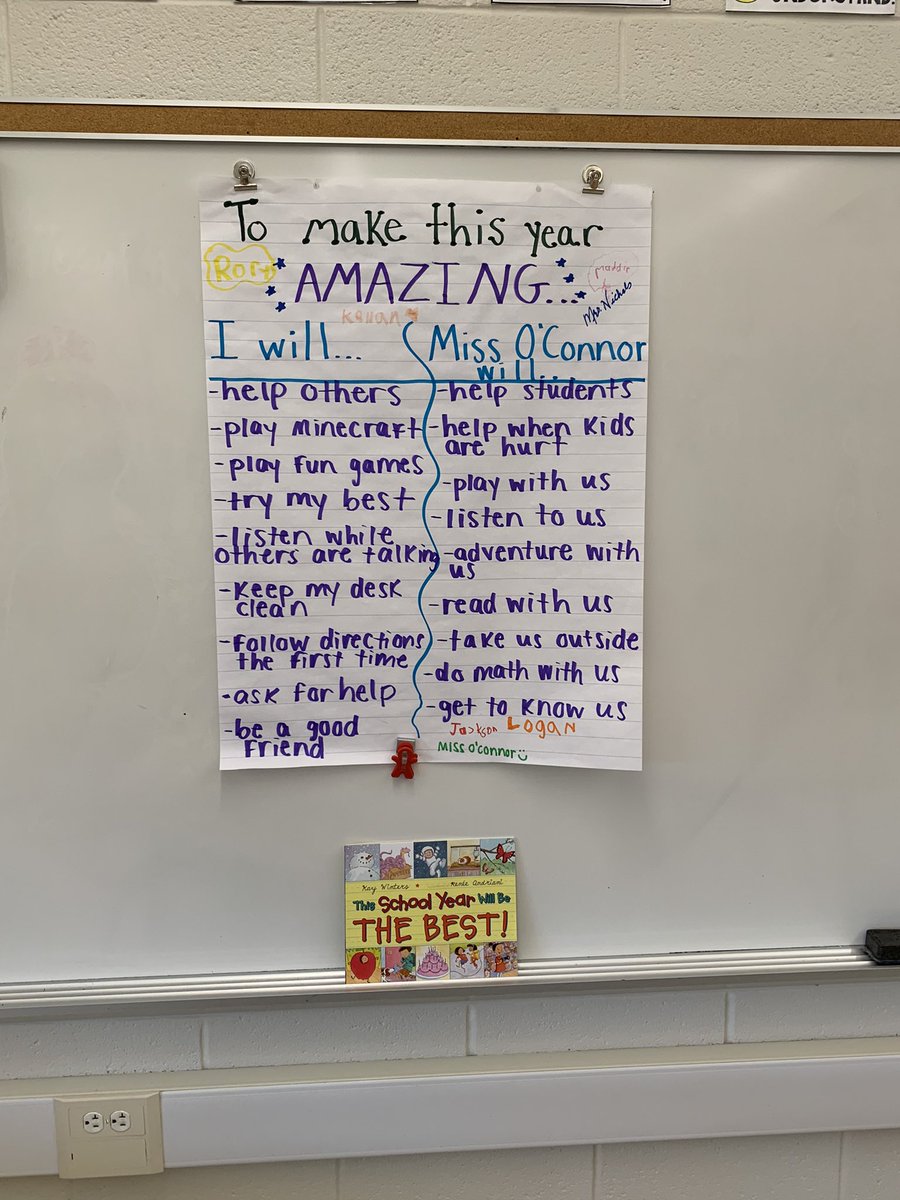 To make this year
Rory
AMAZING...
Maddie
Mrs. Nichols
Kenan
I will...
-help others
-play minecraft
-play fun games
-try my best
-listen while
others are talking
-keep my desk
clean
-follow directions
the first time
-ask for help
-be a good
friend
Miss O'Connor
will...
-help students
-help when kids
are hurt
-play with us
-listen to us
-adventure with
us
-read with us
-take us outside
-do math with us
-get to know us
Jackson
LOGAN
MISS O'connor
Kay Winters
Renée Andriani
This School Year Will Be
THE BEST!